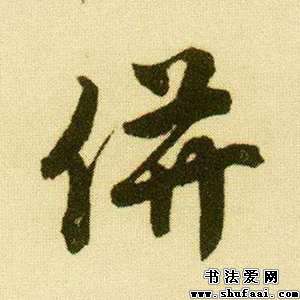 併
书法爱网
www.shufaai.com